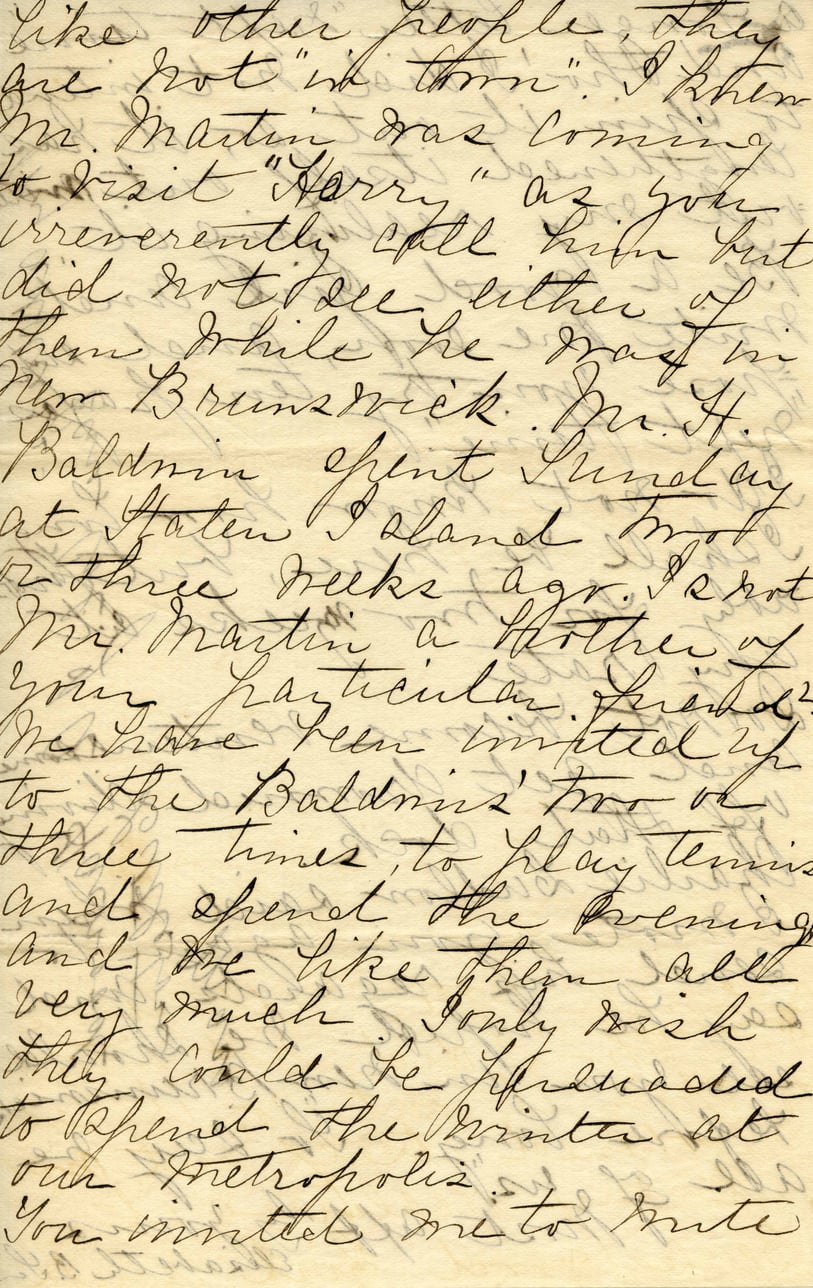 like other people, they
are not "in town". I knew
Mr. Martin was coming
to visit "Harry" as you
irreverently call him but
did not see either of
them while he was in
New Brunswick. Mr. H.
Baldwin spent Sunday
at Staten Island two
or three weeks ago. Is not
Mr. Martin a brother of
your particular friend?
We have been invited up
to the Baldwins' two or
three times, to play tennis
and spend the evening,
and we like them all
very much I only wish
they could be persuaded
to spend the winter at
our Metropolis.
You invited me to write